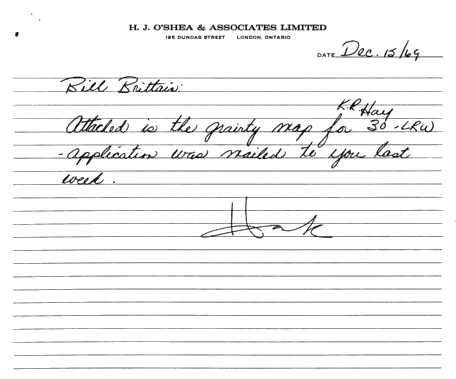 H. J. O'SHEA & ASSOCIATES LIMITED
195 DUNDAS STREET LONDON, ONTARIO
DATE Dec. 15/69
Bill Brittain:
K.R. Hay
Attached is the gravity map for 30-LRW
- application was mailed to you last
week.
Hank